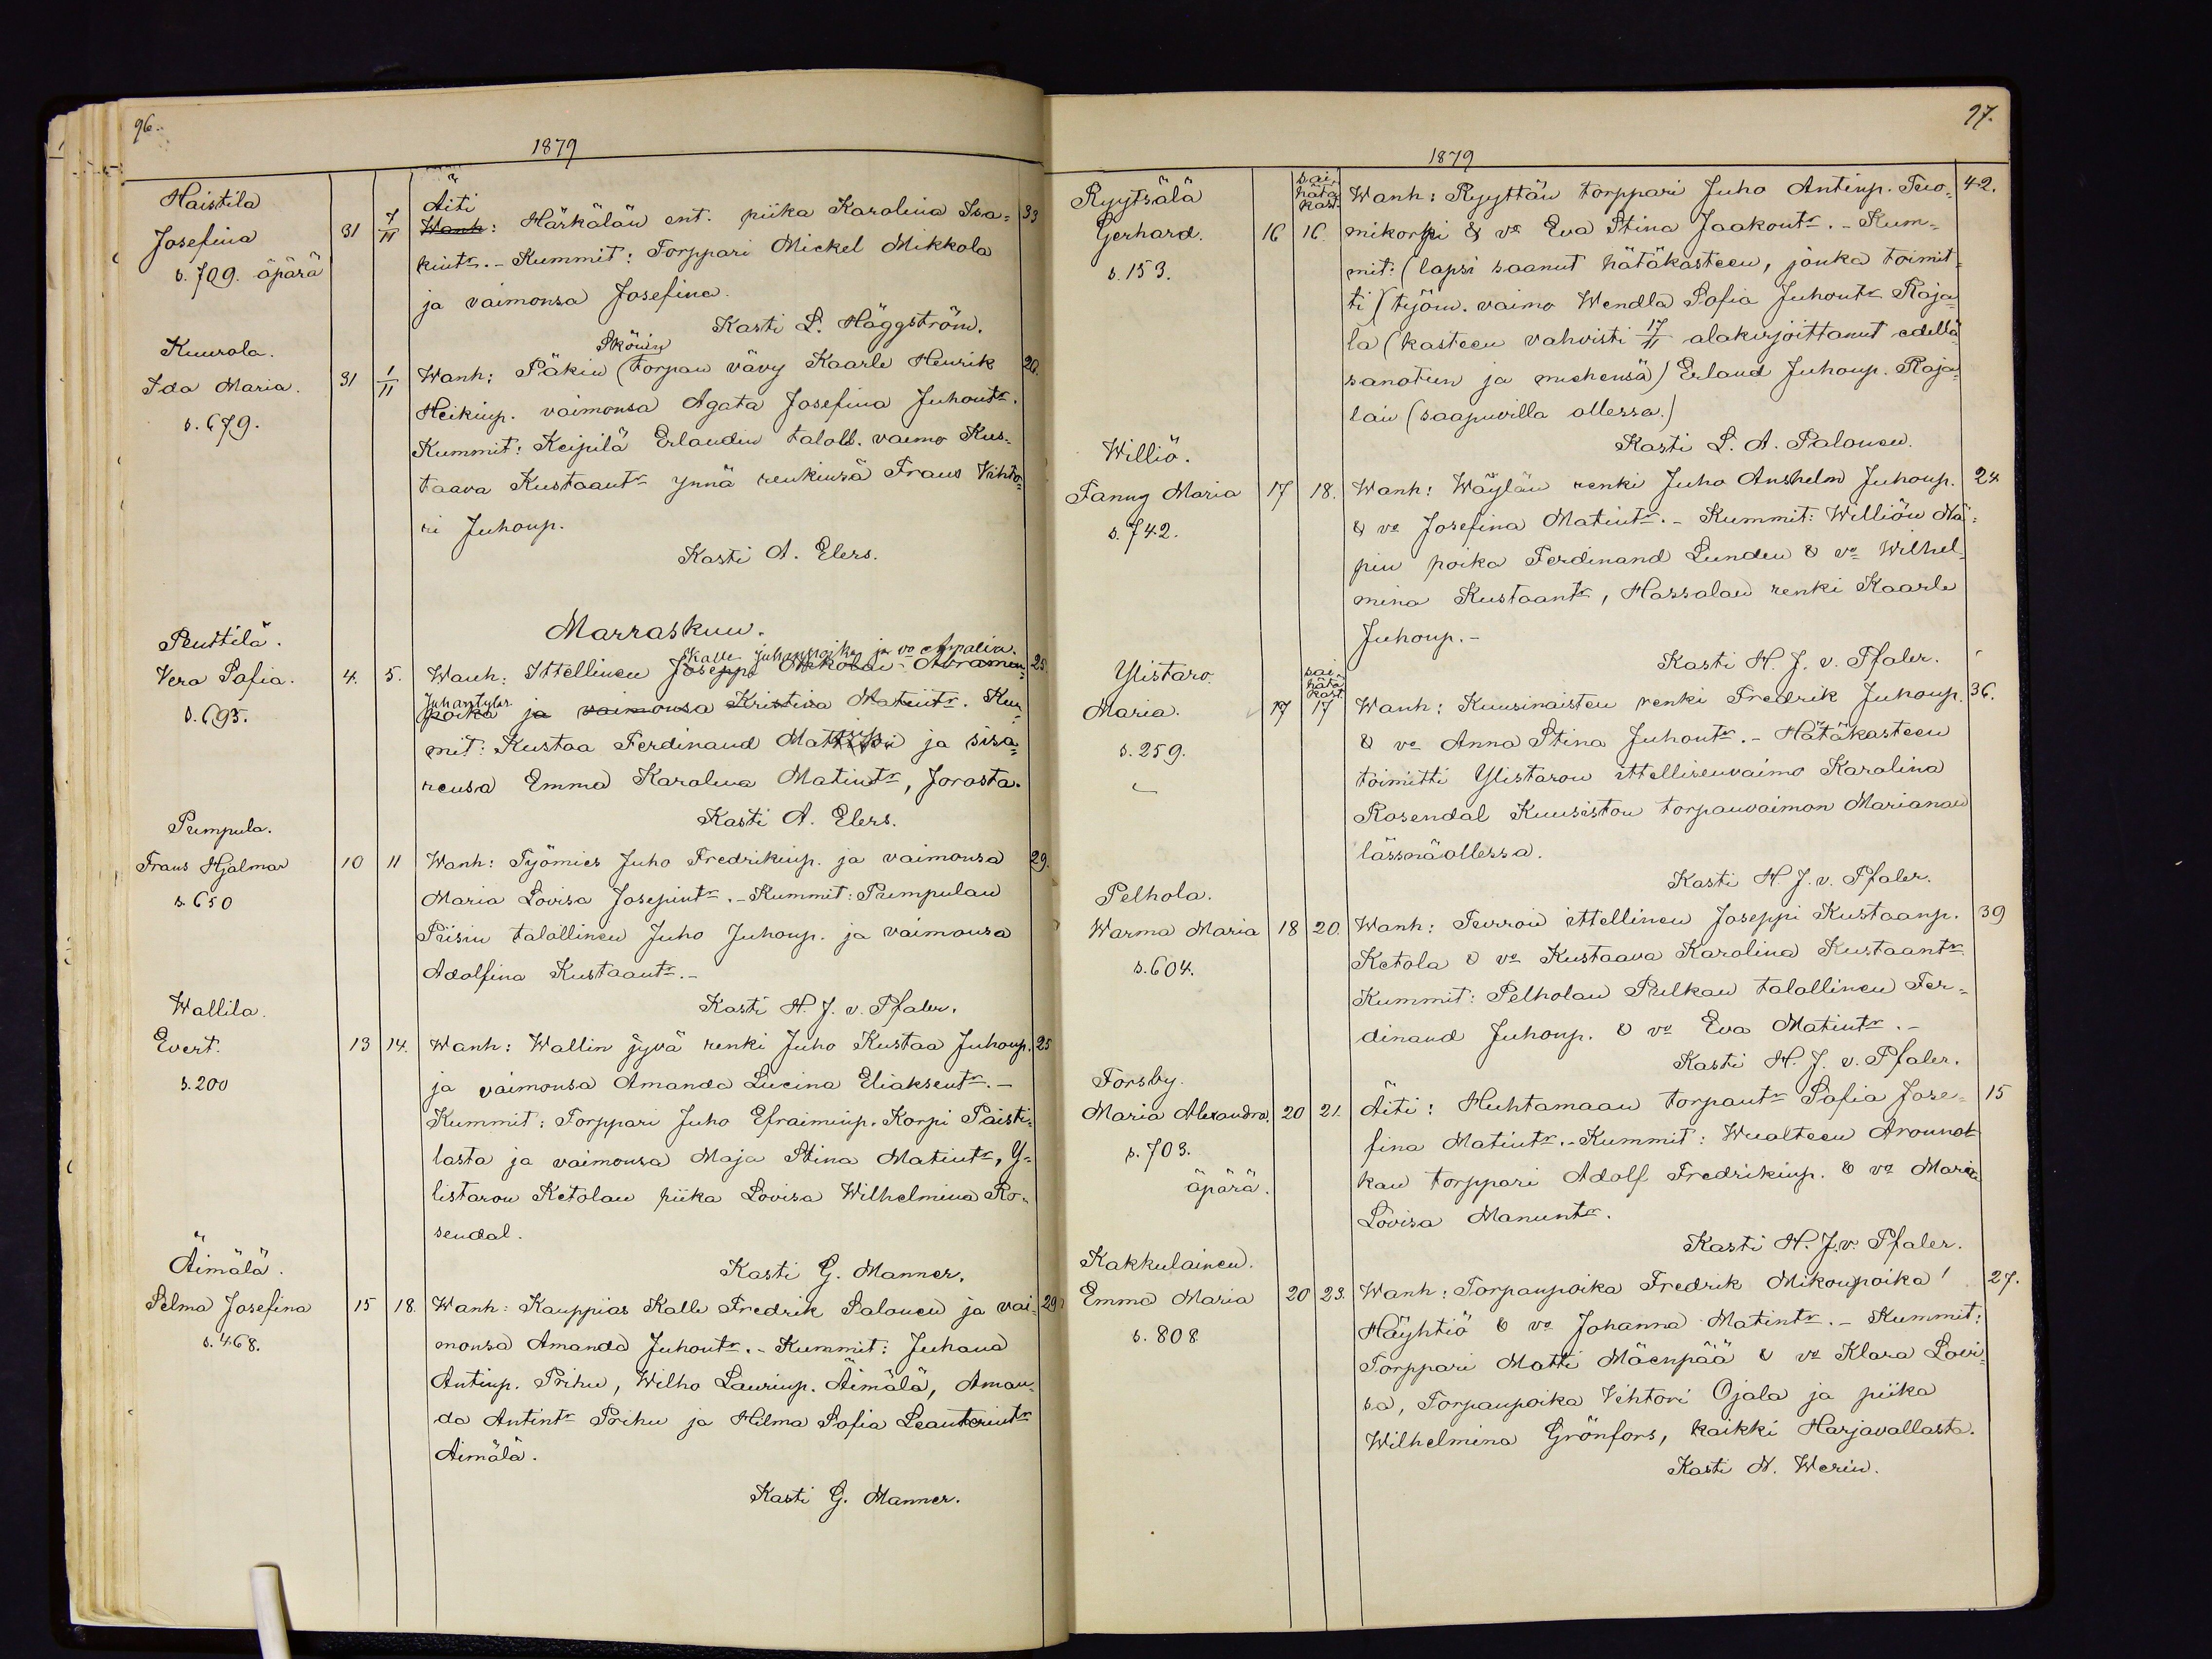 96.
1879
Haistila
Josefina
s. 709. äpärä
31 7/11
Äiti
Wanh: Härkälän ent. piika Karolina Isa= 33
kintr. - Kummit: Torppari Mickel Mikkola
ja vaimonsa Josefina.
Kasti L. Häggström.
Kuurola.
Ida Maria. 31 1/11
s. 679.
Sköuin
Wanh: Päkin (torpan vävy Kaarle Henrik 20.
Heikinp. vaimonsa Agata Josefina Juhontr.
Kummit: Keipilä Erlandin taloll. vaimo Kus=
taava Kustaantr ynnä renkinsä Frans Vihto=
ri Juhonp.
Kasti A. Elers.
Marraskuu.
Penttilä.
Vera Sofia. 4. 5.
s. 695.
Kalle Juhanpoika ja vo Amalia.
Wanh: Ittellinen Joseppi Nikolai Abramin= 25.
Juhantytär
poika ja vaimonsa Kristina Matintr. Kum=
mit: Kustaa Ferdinand ja sisa=
rensa Emma Karolina Matintr, Jorosta.
Kasti A. Elers.
Pumpula.
Frans Hjalmar 10 11
s. 650
Wanh: Työmies Juho Fredrikinp. ja vaimonsa 29.
Maria Lovisa Josepintr. - Kummit: Pumpulan
Piisin talollinen Juho Juhonp. ja vaimonsa
Adolfina Kustaantr. -
Kasti H. J. v. Pfaler.
Wallila.
Evert. 13 14.
s. 200
Wanh: Wallin jyvä renki Juho Kustaa Juhonp. 25
ja vaimonsa Amanda Lucina Eliaksentr. -
Kummit: Torppari Juho Efraiminp. Korpi Paisti=
lasta ja vaimonsa Maja Stina Matintr, Y=
listaron Ketolan piika Lovisa Wilhelmina Ro=
sendal.
Kasti G. Manner.
Äimälä.
Selma Josefina 15 18.
s. 468.
Wanh: Kauppias Kalle Fredrik Salonen ja vai= 29
monsa Amanda Juhontr. - Kummit: Juhana
Antinp. Prihu, Wilho Laurinp. Äimälä, Aman=
da Antintr Prihu ja Hilma Sofia Leanterintr
Äimälä.
Kasti G. Manner.
97.
1879
Ryytsälä
Gerhard. 16 16.
s. 153.
sai
hätä
kast.
Wanh: Ryyttän torppari Juho Antinp. Tuo= 42.
mikorpi & vo Eva Stina Jaakontr. - Kum=
mit: (lapsi saanut hätäkasteen, jonka toimit=
ti (työm. vaimo Wendla Sofia Juhontr Raja=
la (kasteen vahvisti 17/11 alakirjoittanut edellä
sanotun ja miehensä) Erland Juhonp. Raja=
lan (saapuvilla ollessa.)
Kasti L. A. Salonen.
Williö.
Fanny Maria 17 18.
s. 742.
Wanh: Wäylän renki Juho Anshelm Juhonp. 24
& vo Josefina Matintr. - Kummit: Williön Nä=
pin poika Ferdinand Lunden & vo Wilhel=
mina Kustaantr, Hassalan renki Kaarle
Juhonp. -
Kasti H. J. v. Pfaler.
Ylistaro.
Maria. 17 17
s. 259.
sai
hätä
kast.
Wanh: Kuusinaisten renki Fredrik Juhonp. 36.
& vo Anna Stina Juhontr. - Hätäkasteen
toimitti Ylistaron ittellisenvaimo Karolina
Rosendal Kuusiston torpanvaimon Marianan
lässnäollessa.
Kasti H. J. v. Pfaler.
Pelhola.
Warma Maria 18 20.
s. 604.
Wanh: Turroin ittellinen Joseppi Kustaanp. 39
Ketola & vo Kustaava Karolina Kustaantr
Kummit: Pelholan Pulkan talollinen Fer=
dinand Juhonp. & vo Eva Matintr. -
Kasti H. J. v. Pfaler.
Forsby.
Maria Alexandra. 20 21.
s. 703.
äpärä.
Äiti: Huhtamaan torpantr Sofia Jose= 15
fina Matintr. - Kummit: Wualteen Arounot
kan torppari Adolf Fredrikinp. & vo Maria
Lovisa Manuntr.
Kasti H. J. v. Pfaler.
Kakkulainen.
Emma Maria 20 23.
s. 808
Wanh: Torpanpoika Fredrik Mikonpoika 27.
Häyhtiö & vo Johanna Matintr. - Kummit:
Torppari Matti Mäenpää & vo Klara Lovi=
sa, Torpanpoika Vihtori Ojala ja piika
Wilhelmina Grönfors, kaikki Harjavallasta.
Kasti N. Werin.